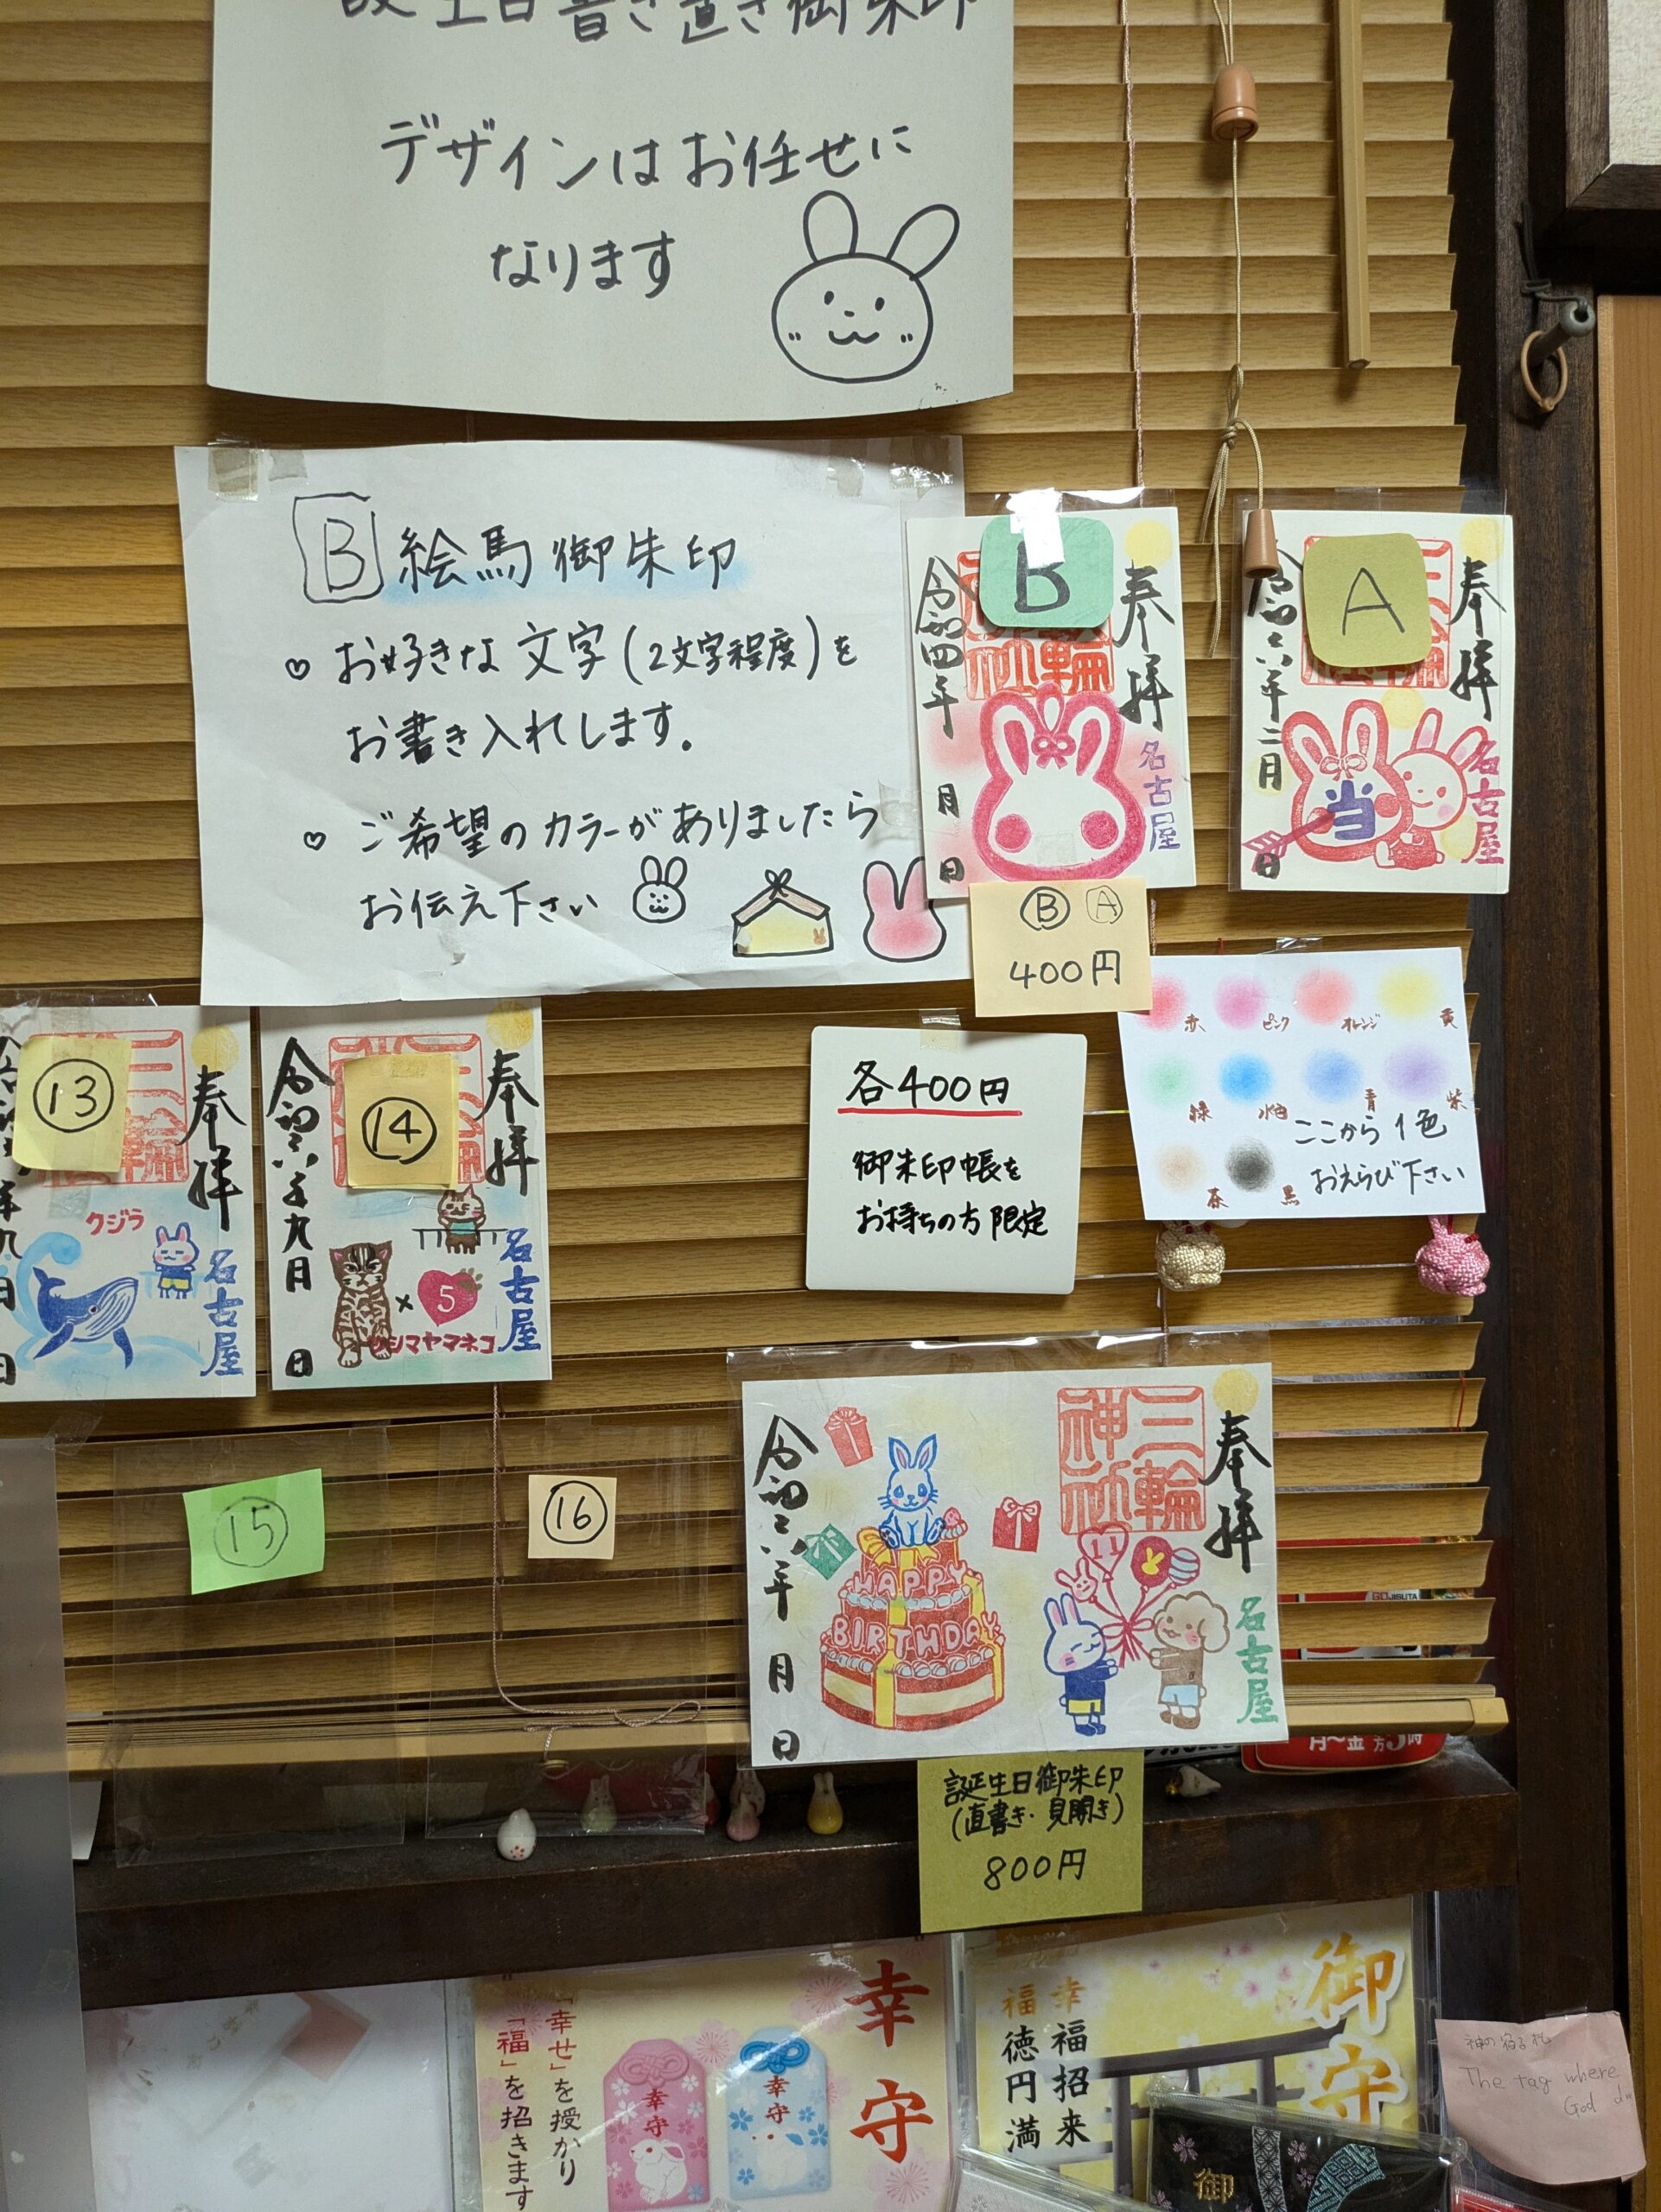 誕生日書き置き御朱印
デザインはお任せに
なります
B 絵馬御朱印
♡ お好きな文字(2文字程度)を
お書き入れします。
♡ ご希望のカラーがありましたら
お伝え下さい
奉拝
三輪
B
名古屋
令和四年 月 日
奉拝
A
当
名古屋
令和六年二月 日
Ⓑ Ⓐ
400円
赤 ピンク オレンジ 黄
緑 水色 青 紫
茶 黒
ここから1色
おえらび下さい
奉拝
三輪
⑬
クジラ
名古屋
奉拝
⑭
名古屋
令和六年九月 日
× 5
ツシマヤマネコ
各400円
御朱印帳を
お持ちの方限定
⑮
⑯
奉拝
三輪神社
名古屋
11
HAPPY
BIRTHDAY
令和六年 月 日
誕生日御朱印
(直書き・見開き)
800円
GOJISUTA
月～金
幸守
幸守
幸守
「幸せ」を授かり
「福」を招きます
御守
幸福招来
福徳円満
御
神の宿る札
The tag where
God